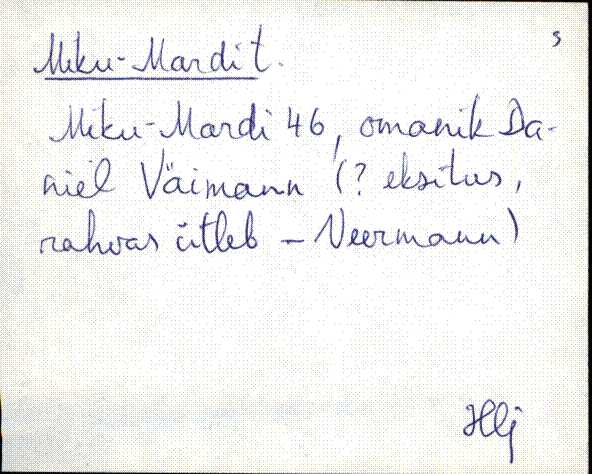 s
Miku-Mardi t.
Miku-Mardi 46, omanik Da-
niel Väimann (? eksitus,
rahvas ütleb – Veermann)
Hlj